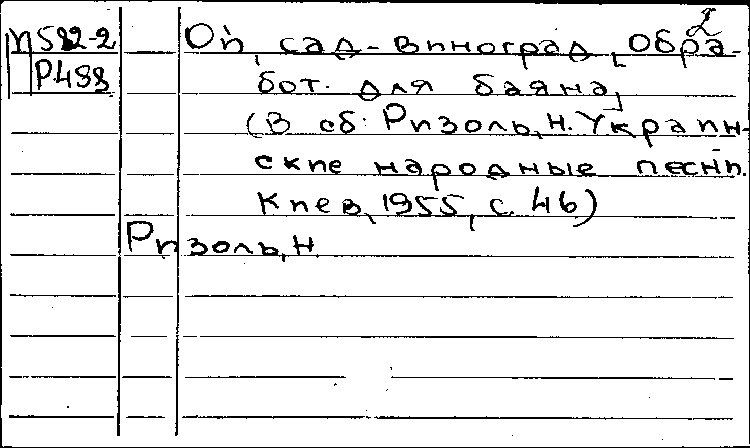 2
М582-2 Ой, сад-виноград, [Обра-
Р488 бот. для баяна]
(В сб: Ризоль, Н. Украин-
ские народные песни.
Киев, 1955, с. 46)
Ризоль, Н.